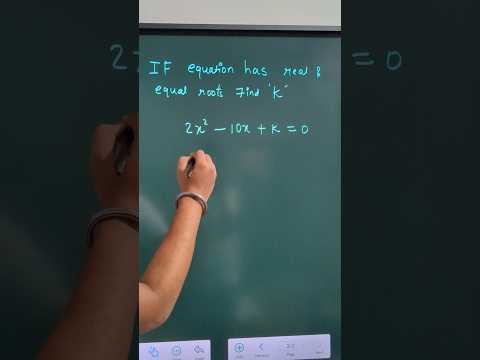 IF equation has real &
equal roots find 'K'
2x² − 10x + K = 0